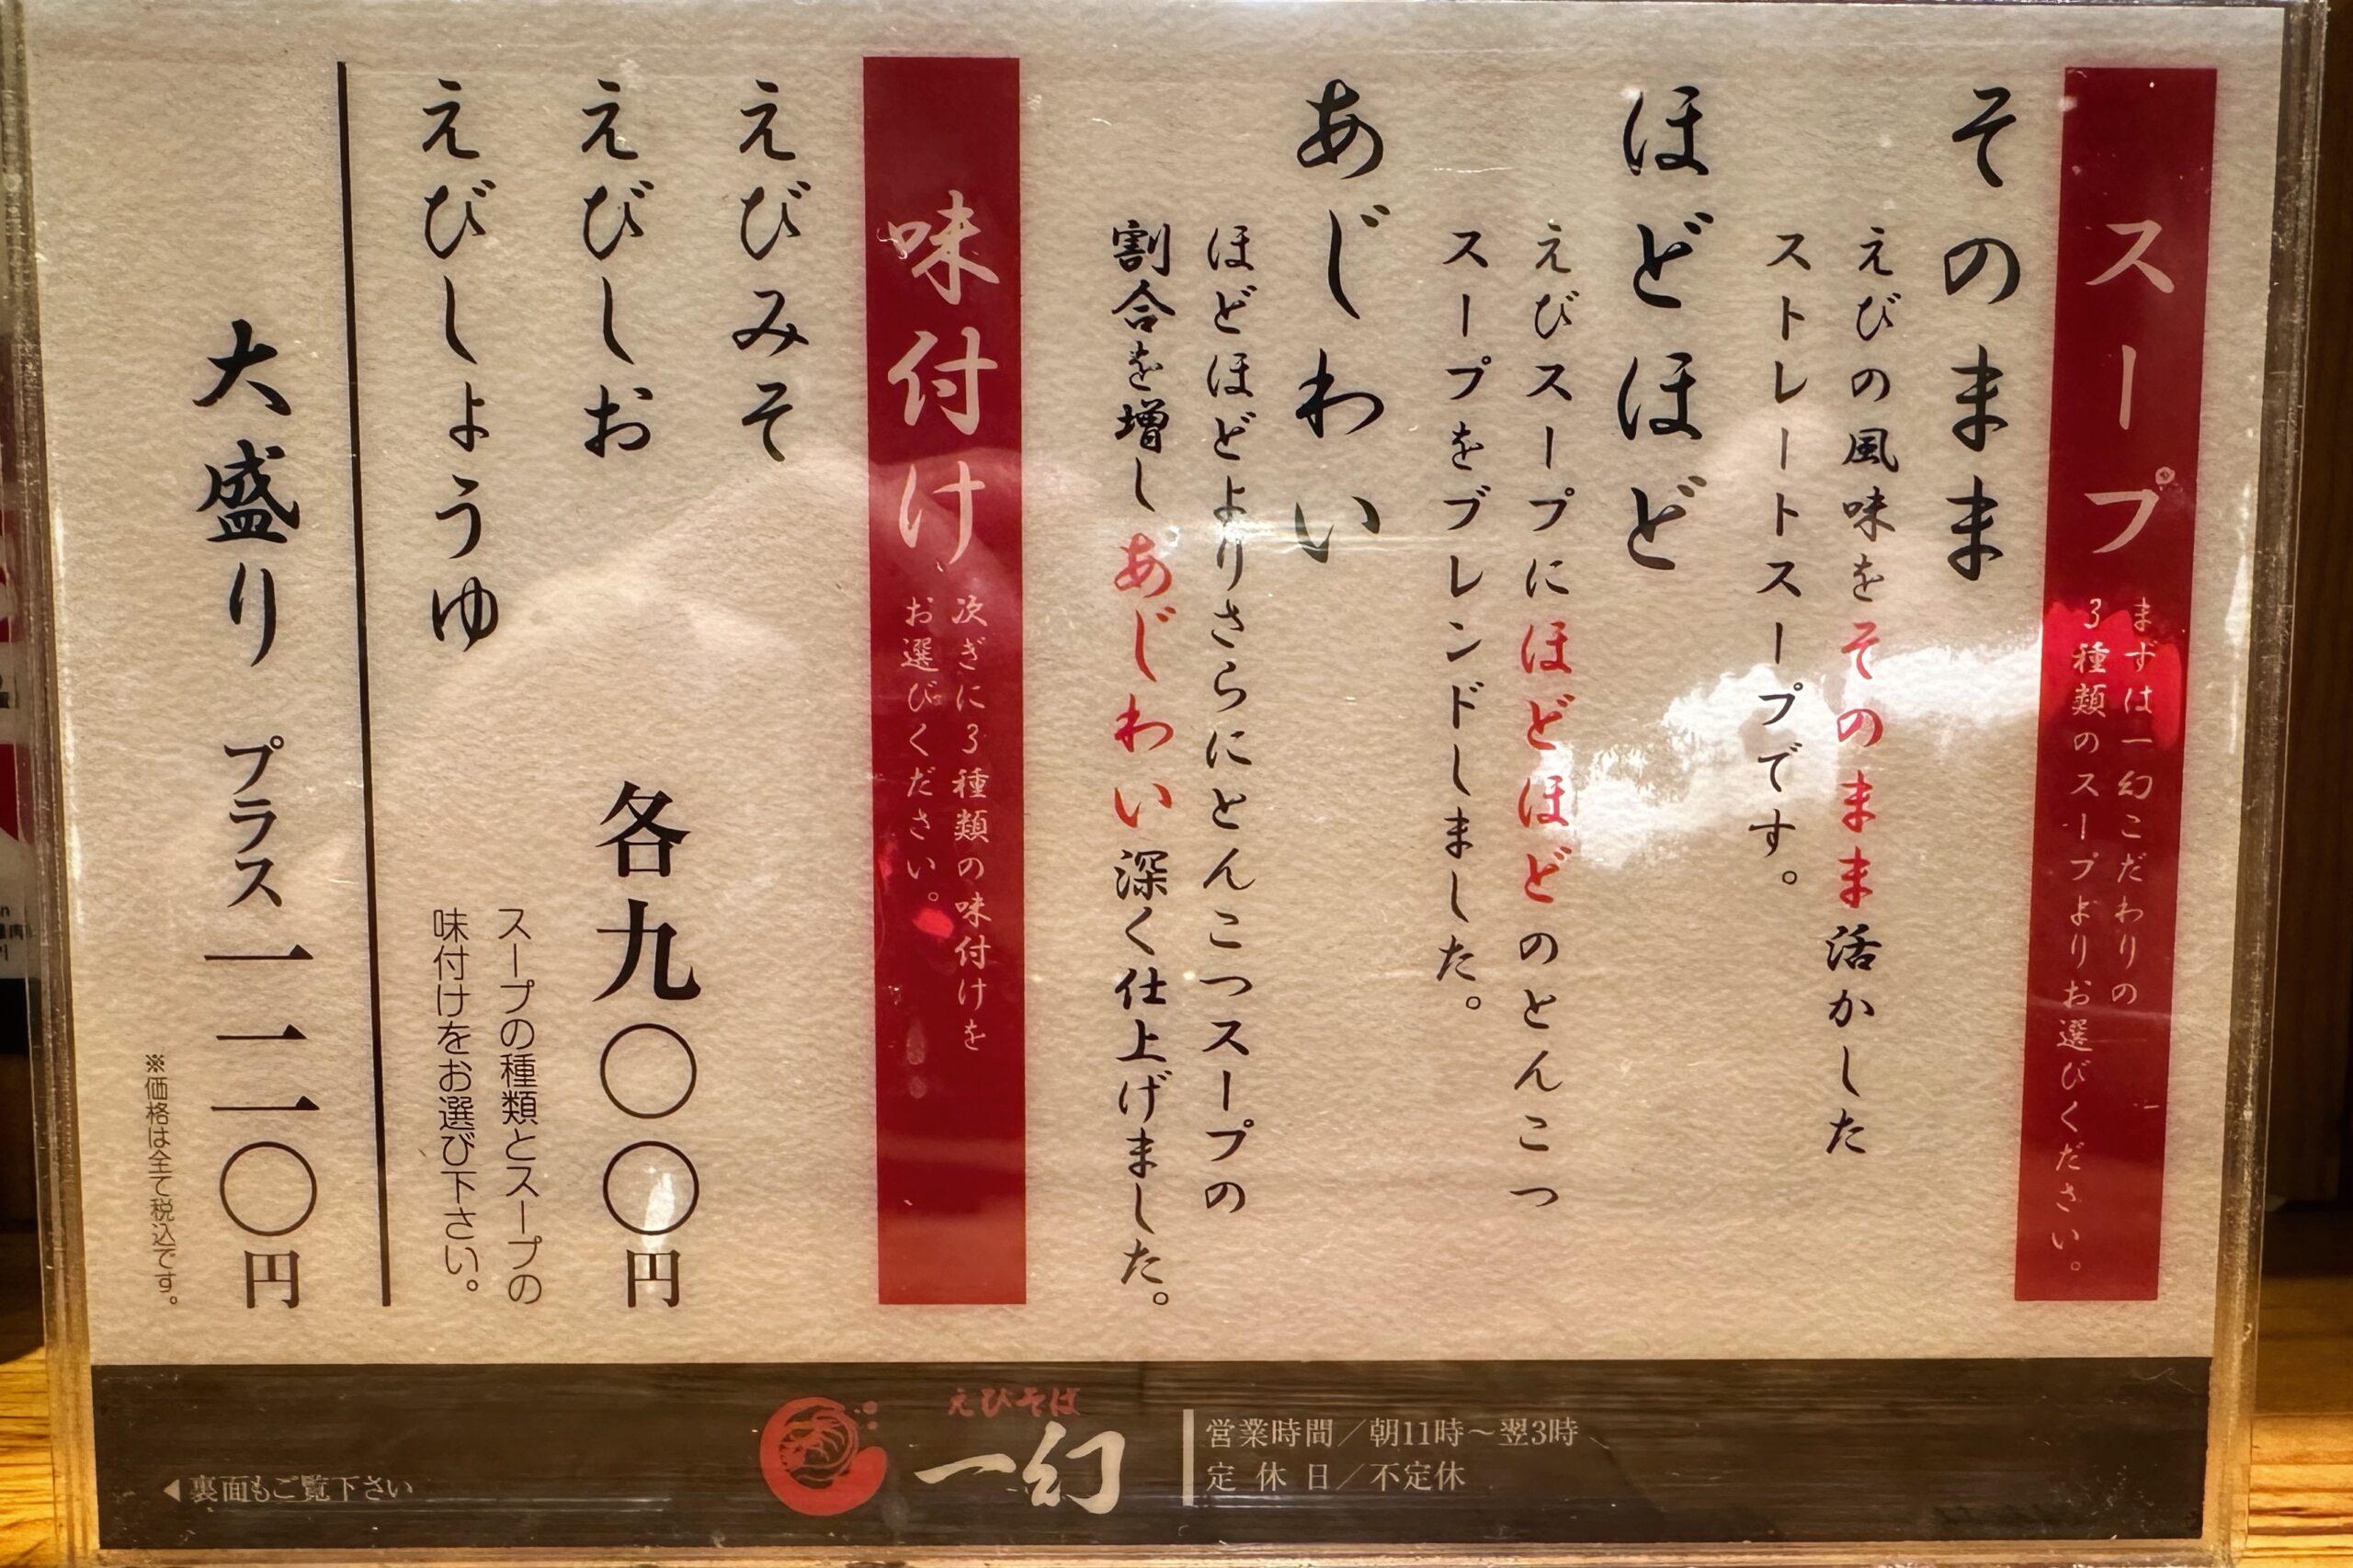 スープ
まずは一幻こだわりの
3種類のスープよりお選びください。
そのまま
えびの風味をそのまま活かした
ストレートスープです。
ほどほど
えびスープにほどほどのとんこつ
スープをブレンドしました。
あじわい
ほどほどよりさらにとんこつスープの
割合を増しあじわい深く仕上げました。
味付け
次ぎに3種類の味付けを
お選びください。
えびみそ
えびしお
えびしょうゆ
各九〇〇円
スープの種類とスープの
味付けをお選び下さい。
大盛り プラス 一二〇円
※価格は全て税込です。
◀裏面もご覧下さい
えびそば
一幻
営業時間／朝11時～翌3時
定休日／不定休